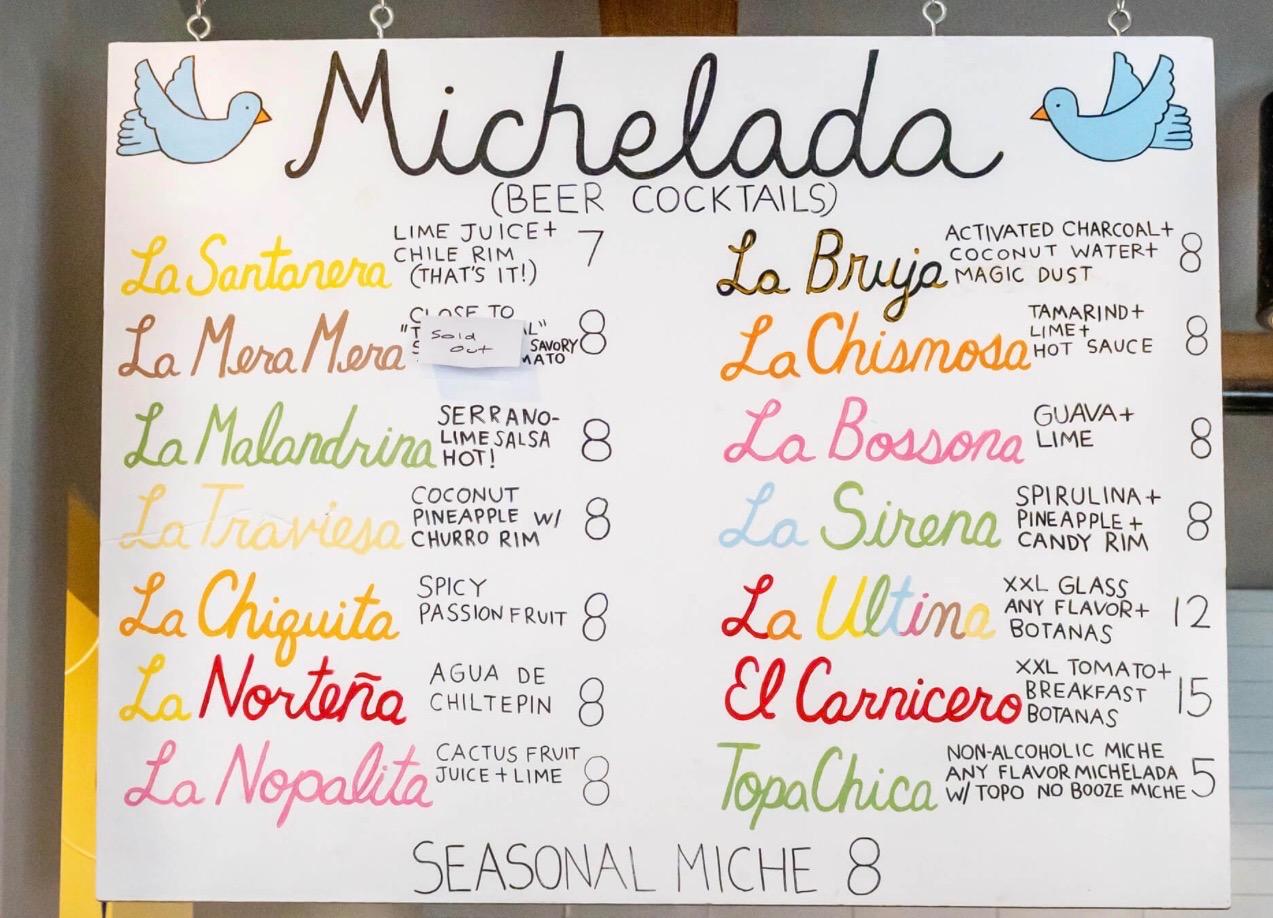 Michelada
(BEER COCKTAILS)
La Santanera
LIME JUICE+
CHILE RIM
(THAT'S IT!)
7
La Mera Mera
CLOSE TO
Sold
out
SAVORY
8
La Malandrina
SERRANO-
LIME SALSA
HOT!
8
La Traviesa
COCONUT
PINEAPPLE W/
CHURRO RIM
8
La Chiquita
SPICY
PASSION FRUIT
8
La Norteña
AGUA DE
CHILTEPIN
8
La Nopalita
CACTUS FRUIT
JUICE + LIME
8
La Bruja
ACTIVATED CHARCOAL+
COCONUT WATER+
MAGIC DUST
8
La Chismosa
TAMARIND+
LIME+
HOT SAUCE
8
La Bossona
GUAVA+
LIME
8
La Sirena
SPIRULINA+
PINEAPPLE+
CANDY RIM
8
La Ultina
XXL GLASS
ANY FLAVOR+
BOTANAS
12
El Carnicero
XXL TOMATO+
BREAKFAST
BOTANAS
15
TopaChica
NON-ALCOHOLIC MICHE
ANY FLAVOR MICHELADA
W/ TOPO NO BOOZE MICHE
5
SEASONAL MICHE 8